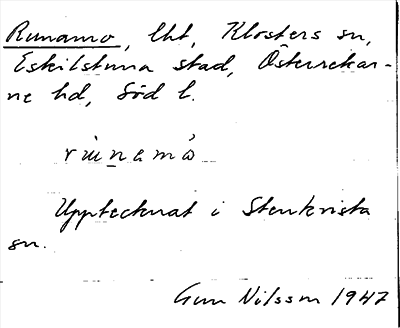 Runamo, lht, Klosters sn,
Eskilstuna stad, Österrekar-
ne hd, Söd l.
rùnamò
Upptecknat i Stenkvista
sn.
Gun Nilsson 1947